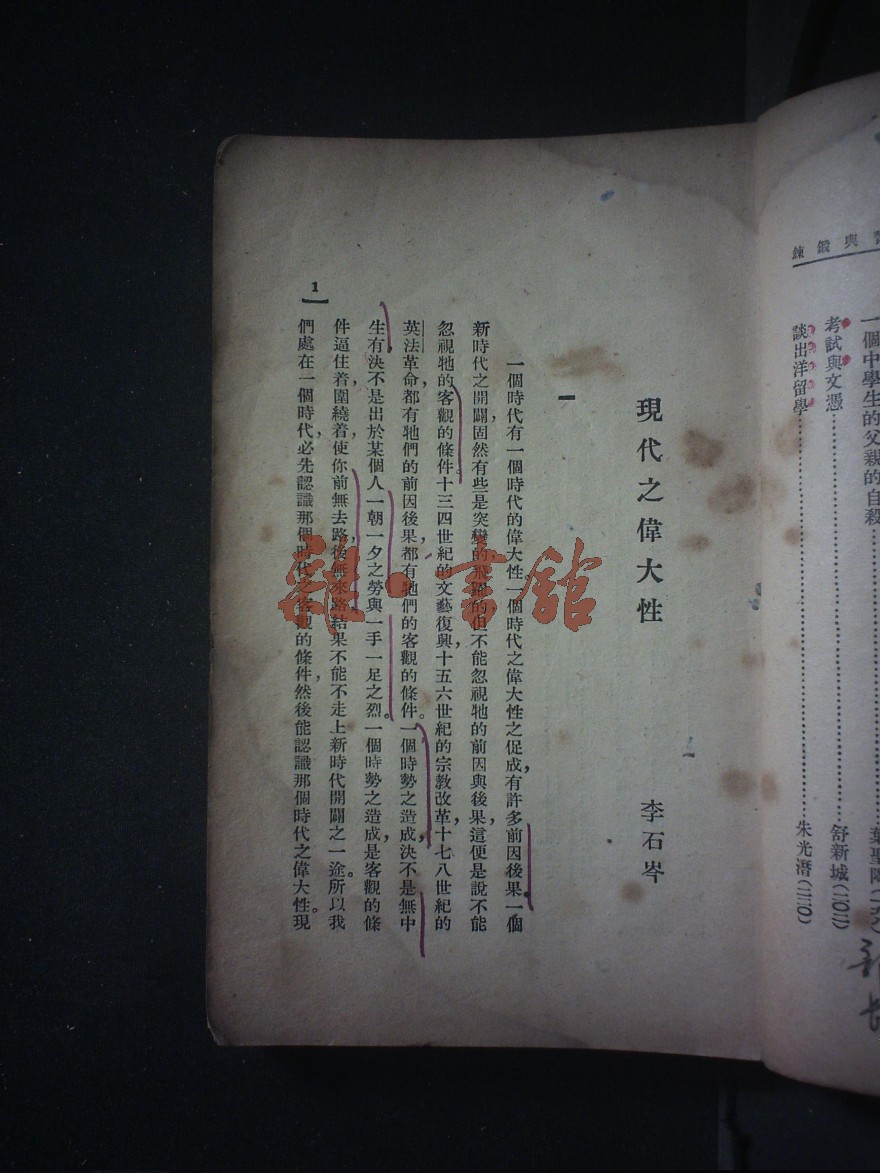 鍊鍛與
一個中學生的父親的自殺
葉聖陶
考試與文憑
舒新城(二〇二)
談出洋留學
朱光潛(二二〇)
現代之偉大性
李石岑
一
一個時代有一個時代的偉大性。一個時代之偉大性之促成,有許多前因後果。一個
新時代之開闢,固然有些是突變的,飛躍的,但不能忽視牠的前因與後果,這便是說不能
忽視牠的客觀的條件。十三四世紀的文藝復興,十五六世紀的宗教改革,十七八世紀的
英法革命,都有牠們的前因後果,都有牠們的客觀的條件。一個時勢之造成,決不是無中
生有,決不是出於某個人一朝一夕之勞與一手一足之烈。一個時勢之造成,是客觀的條
件逼住着,圍繞着,使你前無去路,後無來路,結果不能不走上新時代開闢之一途。所以我
們處在一個時代,必先認識那個時代之客觀的條件,然後能認識那個時代之偉大性。現
1
雜·書館